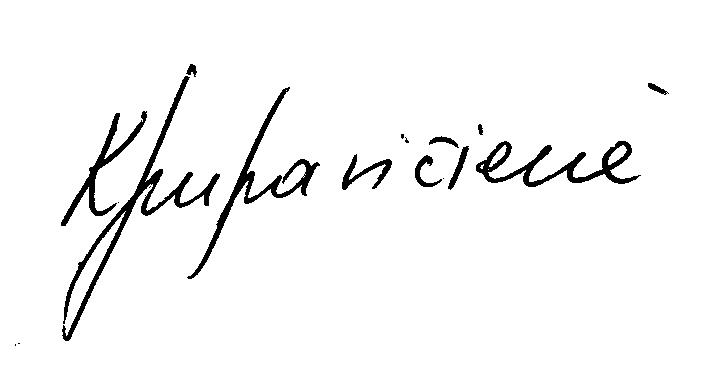 Krupavičienė